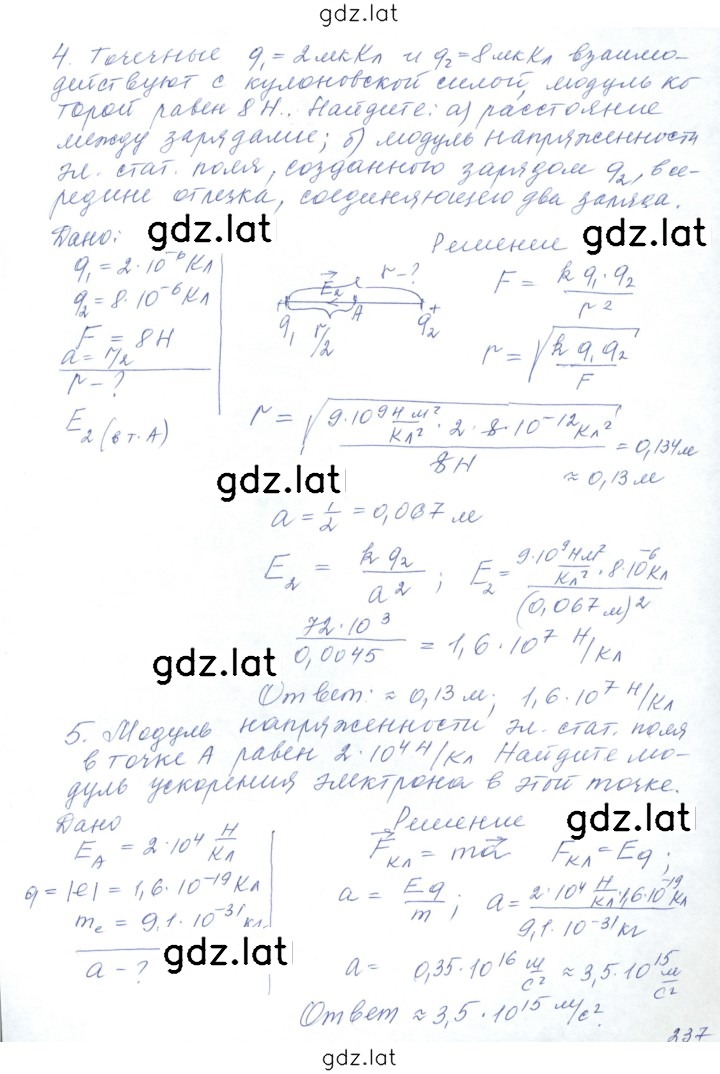 gdz.lat
4. Точечные q₁ = 2мкКл и q₂ = 8мкКл взаимо-
действуют с кулоновской силой, модуль ко
торой равен 8Н.. Найдите: а) расстояние
между зарядами; б) модуль напряженности
эл. стат. поля, созданного зарядом q₂, в се-
редине отрезка, соединяющего два заряда.
gdz.lat gdz.lat
Дано: Решение
q₁ = 2·10⁻⁶Кл
q₂ = 8·10⁻⁶Кл
F = 8Н
a = r/2
r - ?
E₂ (в т. А)
E₂ r - ? q₁ r/2 A q₂ +
F = k q₁·q₂ / r²
r = √(k q₁ q₂ / F)
r = √(9·10⁹ Н м²/Кл² · 2·8·10⁻¹² Кл² / 8Н) = 0,134м
≈ 0,13м
gdz.lat gdz.lat
a = r/2 = 0,067 м
E₂ = k q₂ / a² ; E₂ = 9·10⁹ Нм²/Кл² · 8·10⁻⁶Кл / (0,067м)²
72·10³ / 0,0045 = 1,6·10⁷ Н/Кл
gdz.lat gdz.lat
Ответ: ≈ 0,13м; 1,6·10⁷ Н/Кл
5. Модуль напряженности эл. стат. поля
в точке А равен 2·10⁴ Н/Кл Найдите мо-
дуль ускорения электрона в этой точке.
gdz.lat gdz.lat
Дано Решение
E_A = 2·10⁴ Н/Кл
q = |e| = 1,6·10⁻¹⁹Кл
mₑ = 9,1·10⁻³¹кг
a - ?
F_Кл = ma F_Кл = Eq;
a = Eq / m ; a = 2·10⁴ Н/Кл · 1,6·10⁻¹⁹Кл / 9,1·10⁻³¹кг
gdz.lat gdz.lat
a = 0,35·10¹⁶ м/с² ≈ 3,5·10¹⁵ м/с²
Ответ ≈ 3,5·10¹⁵ м/с².
237
gdz.lat